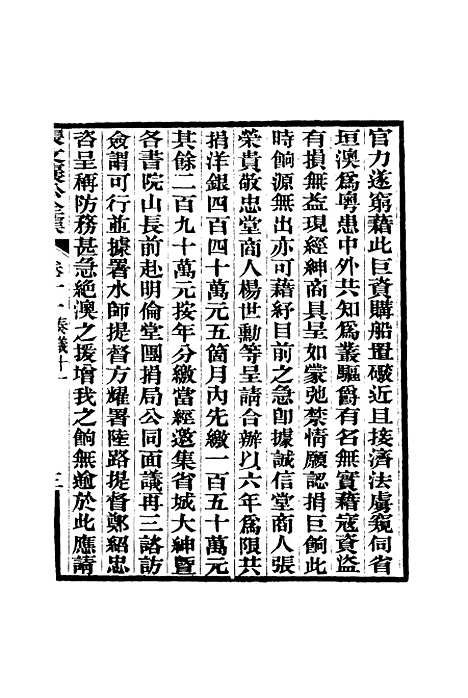 官力遂窮藉此巨資購船置礮近且接濟法虜窺伺省
垣澳爲粵患中外共知爲叢驅爵有名無實藉寇資盜
有損無益現經紳商具呈如蒙弛禁情願認捐巨餉此
時餉源無出亦可藉紓目前之急卽據誠信堂商人張
榮貴敬忠堂商人楊世勳等呈請合辦以六年爲限共
捐洋銀四百四十萬元五箇月內先繳一百五十萬元
其餘二百九十萬元按年分繳當經邀集省城大紳暨
各書院山長前赴明倫堂團捐局公同面議再三諮訪
僉謂可行並據署水師提督方耀署陸路提督鄭紹忠
咨呈稱防務甚急絕澳之援增我之餉無逾於此應請
卷十一奏議十一
三